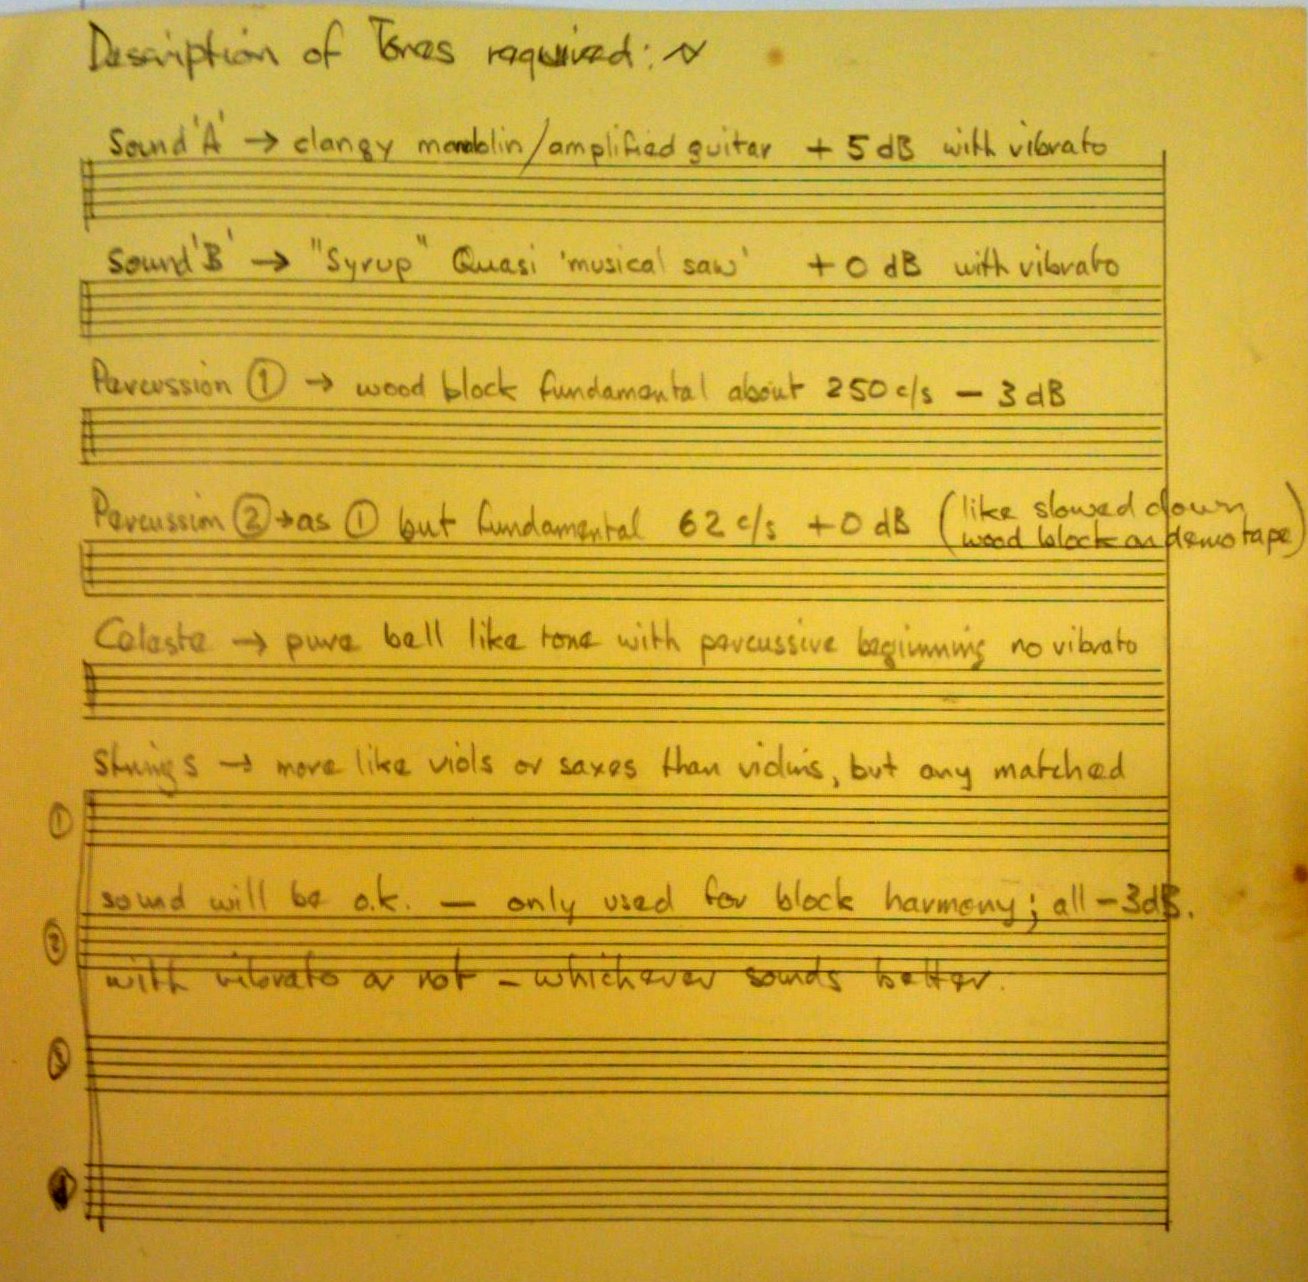 Description of Tones required:
Sound 'A' → clangy mandolin/amplified guitar + 5 dB with vibrato
Sound 'B' → "Syrup" Quasi 'musical saw' + 0 dB with vibrato
Percussion ① → wood block fundamental about 250 c/s - 3 dB
Percussion ② → as ① but fundamental 62 c/s + 0 dB (like slowed down
wood block on demo tape)
Celeste → pure bell like tone with percussive beginning no vibrato
Strings → more like viols or saxes than violins, but any matched
①
sound will be o.k. — only used for block harmony; all - 3dB.
②
with vibrato or not - whichever sounds better.
③
④